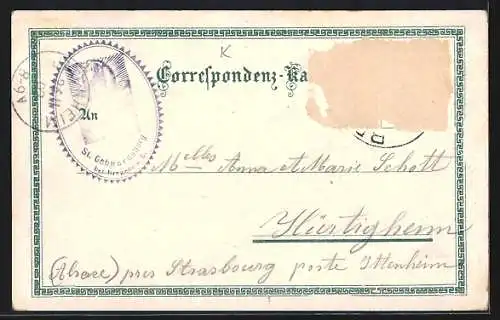 K
Correspondenz-Ka
An
St. Gebhardsberg
Melles Anna et Marie Schott
Hürtigheim
(Alsace) près Strasbourg poste Ittenheim